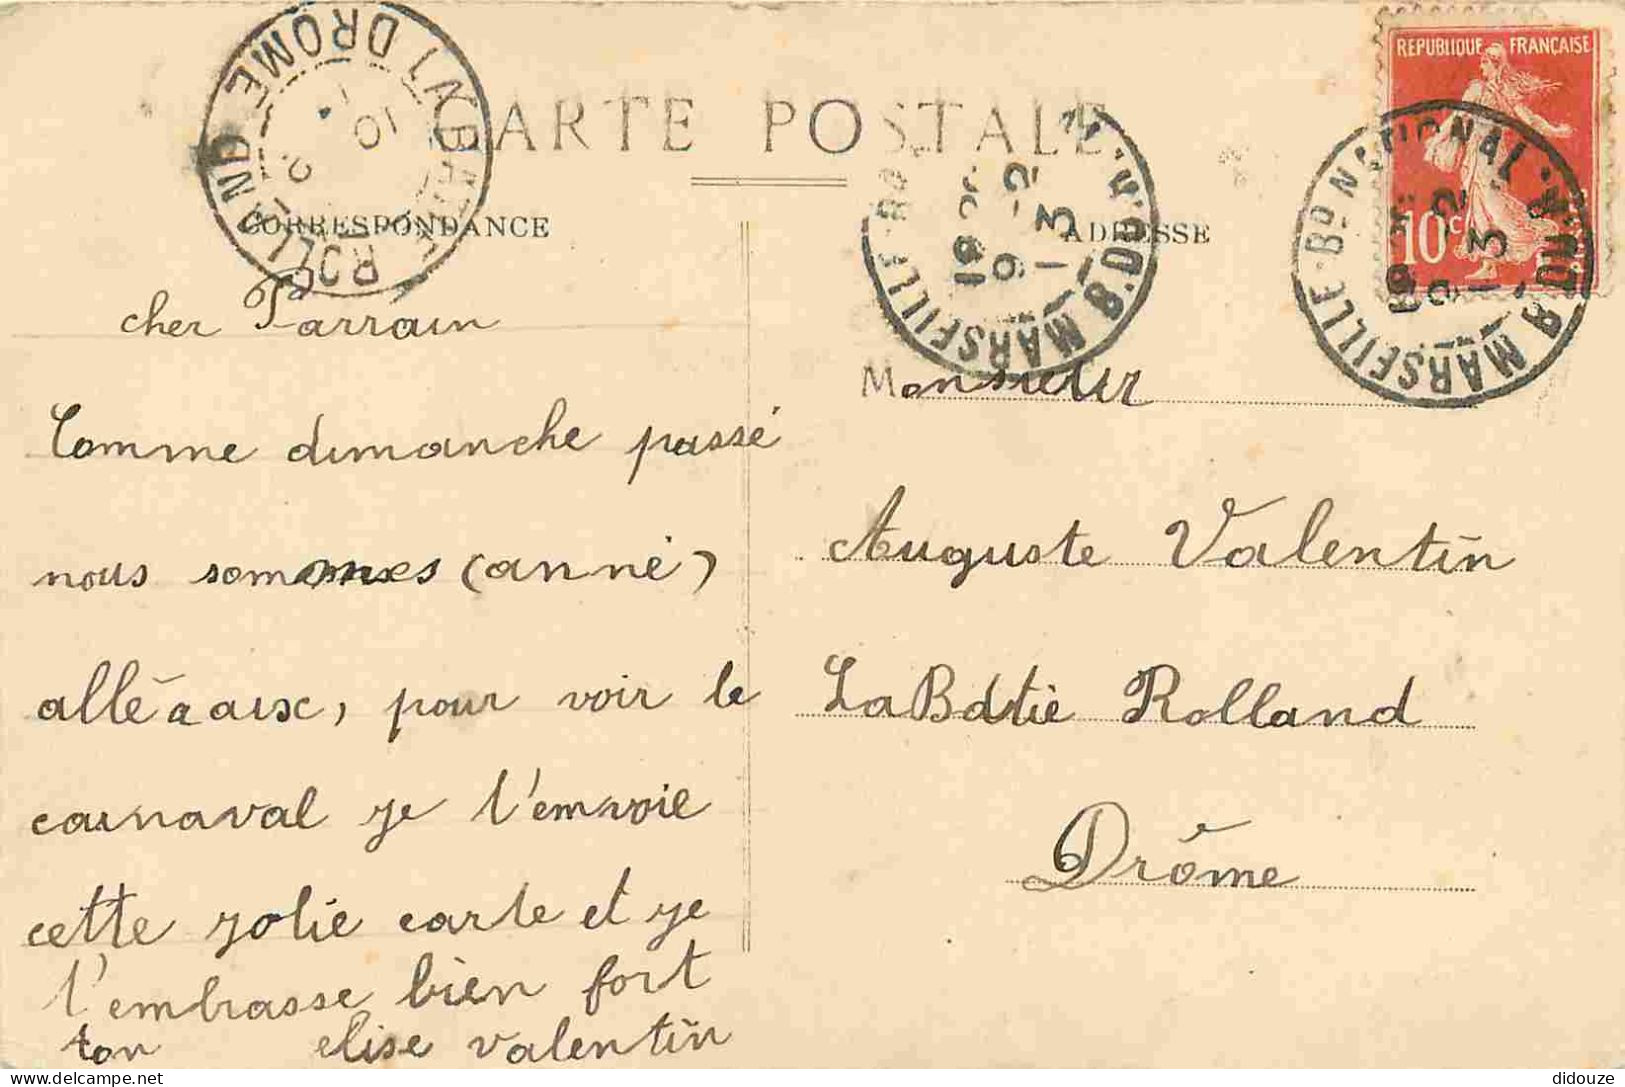 CARTE POSTALE
CORRESPONDANCE
ADRESSE
REPUBLIQUE FRANÇAISE
10c
LA BATIE ROLLAND DROME
10 - 2
MARSEILLE Bd NATIONAL B. DU R.
9 - 2
13
MARSEILLE Bd NATIONAL B. DU R.
9 - 2
13
cher Parrain
Comme dimanche passé
nous sommes (anné)
allé a aix, pour voir le
carnaval je t'envoie
cette jolie carte et je
t'embrasse bien fort
ton elise valentin
Monsieur
Auguste Valentin
La Batie Rolland
Drôme
didouze